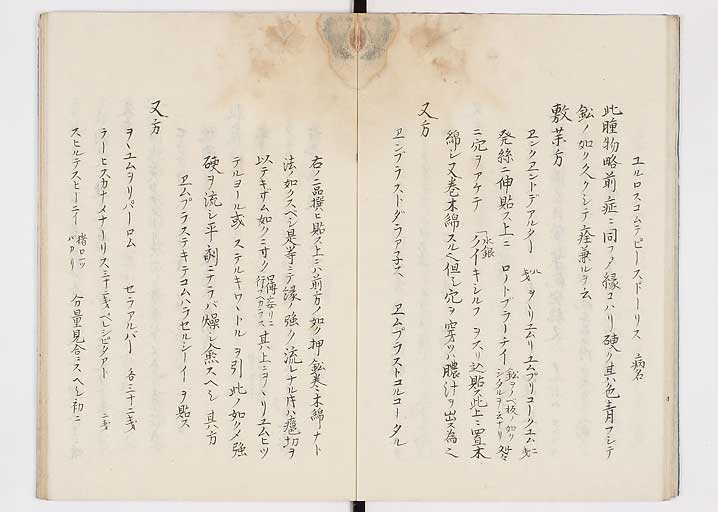 ユルロスコムテピースドーリス 病名
此腫物略前症ニ同フメ縁コハリ硬ク其ハ色青フシテ
鉛ノ如ク久クシテ痊兼ルヲ云
敷薬方
ヱンクヱントデアルター
発絲ニ伸貼ス上ニ ロートプラーテイ 鉛ヲノベ板ノ如ク
ニ穴ヲアケテ 水銀 クイキシルフ ヲスリ込貼ス此上ニ置木
綿シ又巻木綿スル也但シ穴ヲ穿ツハ膿汁ヲ出ス為也
又方
ヱンプラストダラア子ス ヱムプラストコルコータル
右ノ二品撰ヒ貼ス上ニハ前方ノ如ク押鉛巻木綿ナト
法ノ如クスベシ是等ニテ縁強ク流レナル片ハ
以テキザム如クニ寸ク 其ハ上ニヲヽリエムヒツ
テルヨール或 ステルキワートル ヲ引此ノ如クメ強
硬ヲ流シ平剤ニナラバ燥シ愈スヘシ 其方
ヱムプラステキテコムハラセルシーイ ヲ貼ス
又方
ヲヽユムヲリパーロム セラアルバー 各三十二戔
ラーヒスカナメナーリス三十二戔 ペレシピタアト 二戔
スヒルテスビーニー 分量見合ニスヘシ初ニ